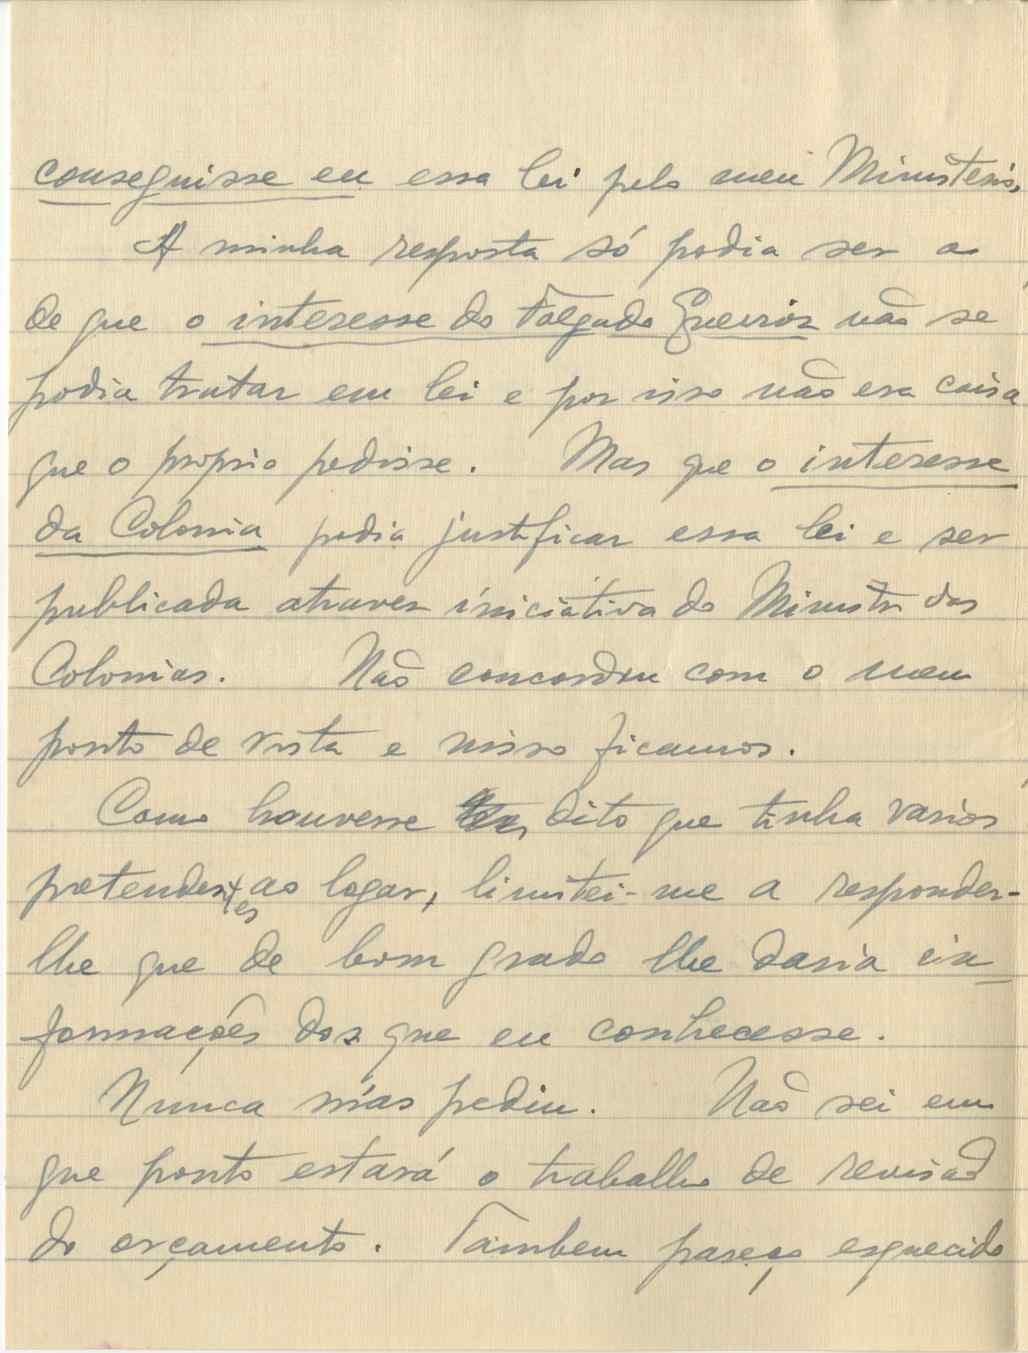 conseguisse eu essa lei pelo meu Ministerio.
A minha resposta só podia ser a
de que o interesse do Folgado Gueiroz não se
podia tratar em lei e por isso não era coisa
que o proprio pedisse. Mas que o interesse
da Colonia podia justificar essa lei e ser
publicada atraves iniciativa do Ministro das
Colonias. Não concordou com o meu
ponto de vista e nisso ficamos.
Como houvesse dito que tinha varios
pretendentes ao logar, limitei-me a responder-
lhe que de bom grado lhe daria in-
formações dos que eu conhecesse.
Nunca mas pediu. Não sei em
que ponto estará o trabalho de revisão
do orçamento. Tambem pareço esquecido